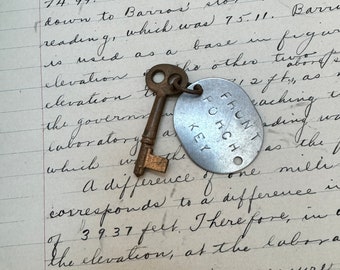 74.99.
down to Barros' stor
reading, which was 75.11. Barr
is used as a base in figur
elevation the other two above so
elevation 1.2 ft, as
the governm reaching t
laboratory a wading
which w the
A difference of one milli
corresponds to a difference i
of 39.37 feet. Therefore, in c
the elevation, at the labora
FRONT
PORCH
KEY